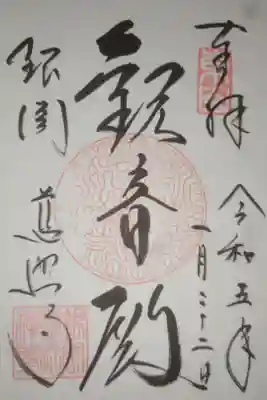 奉拝
令和五年
一月二十二日
観音殿
銀閣
慈照寺